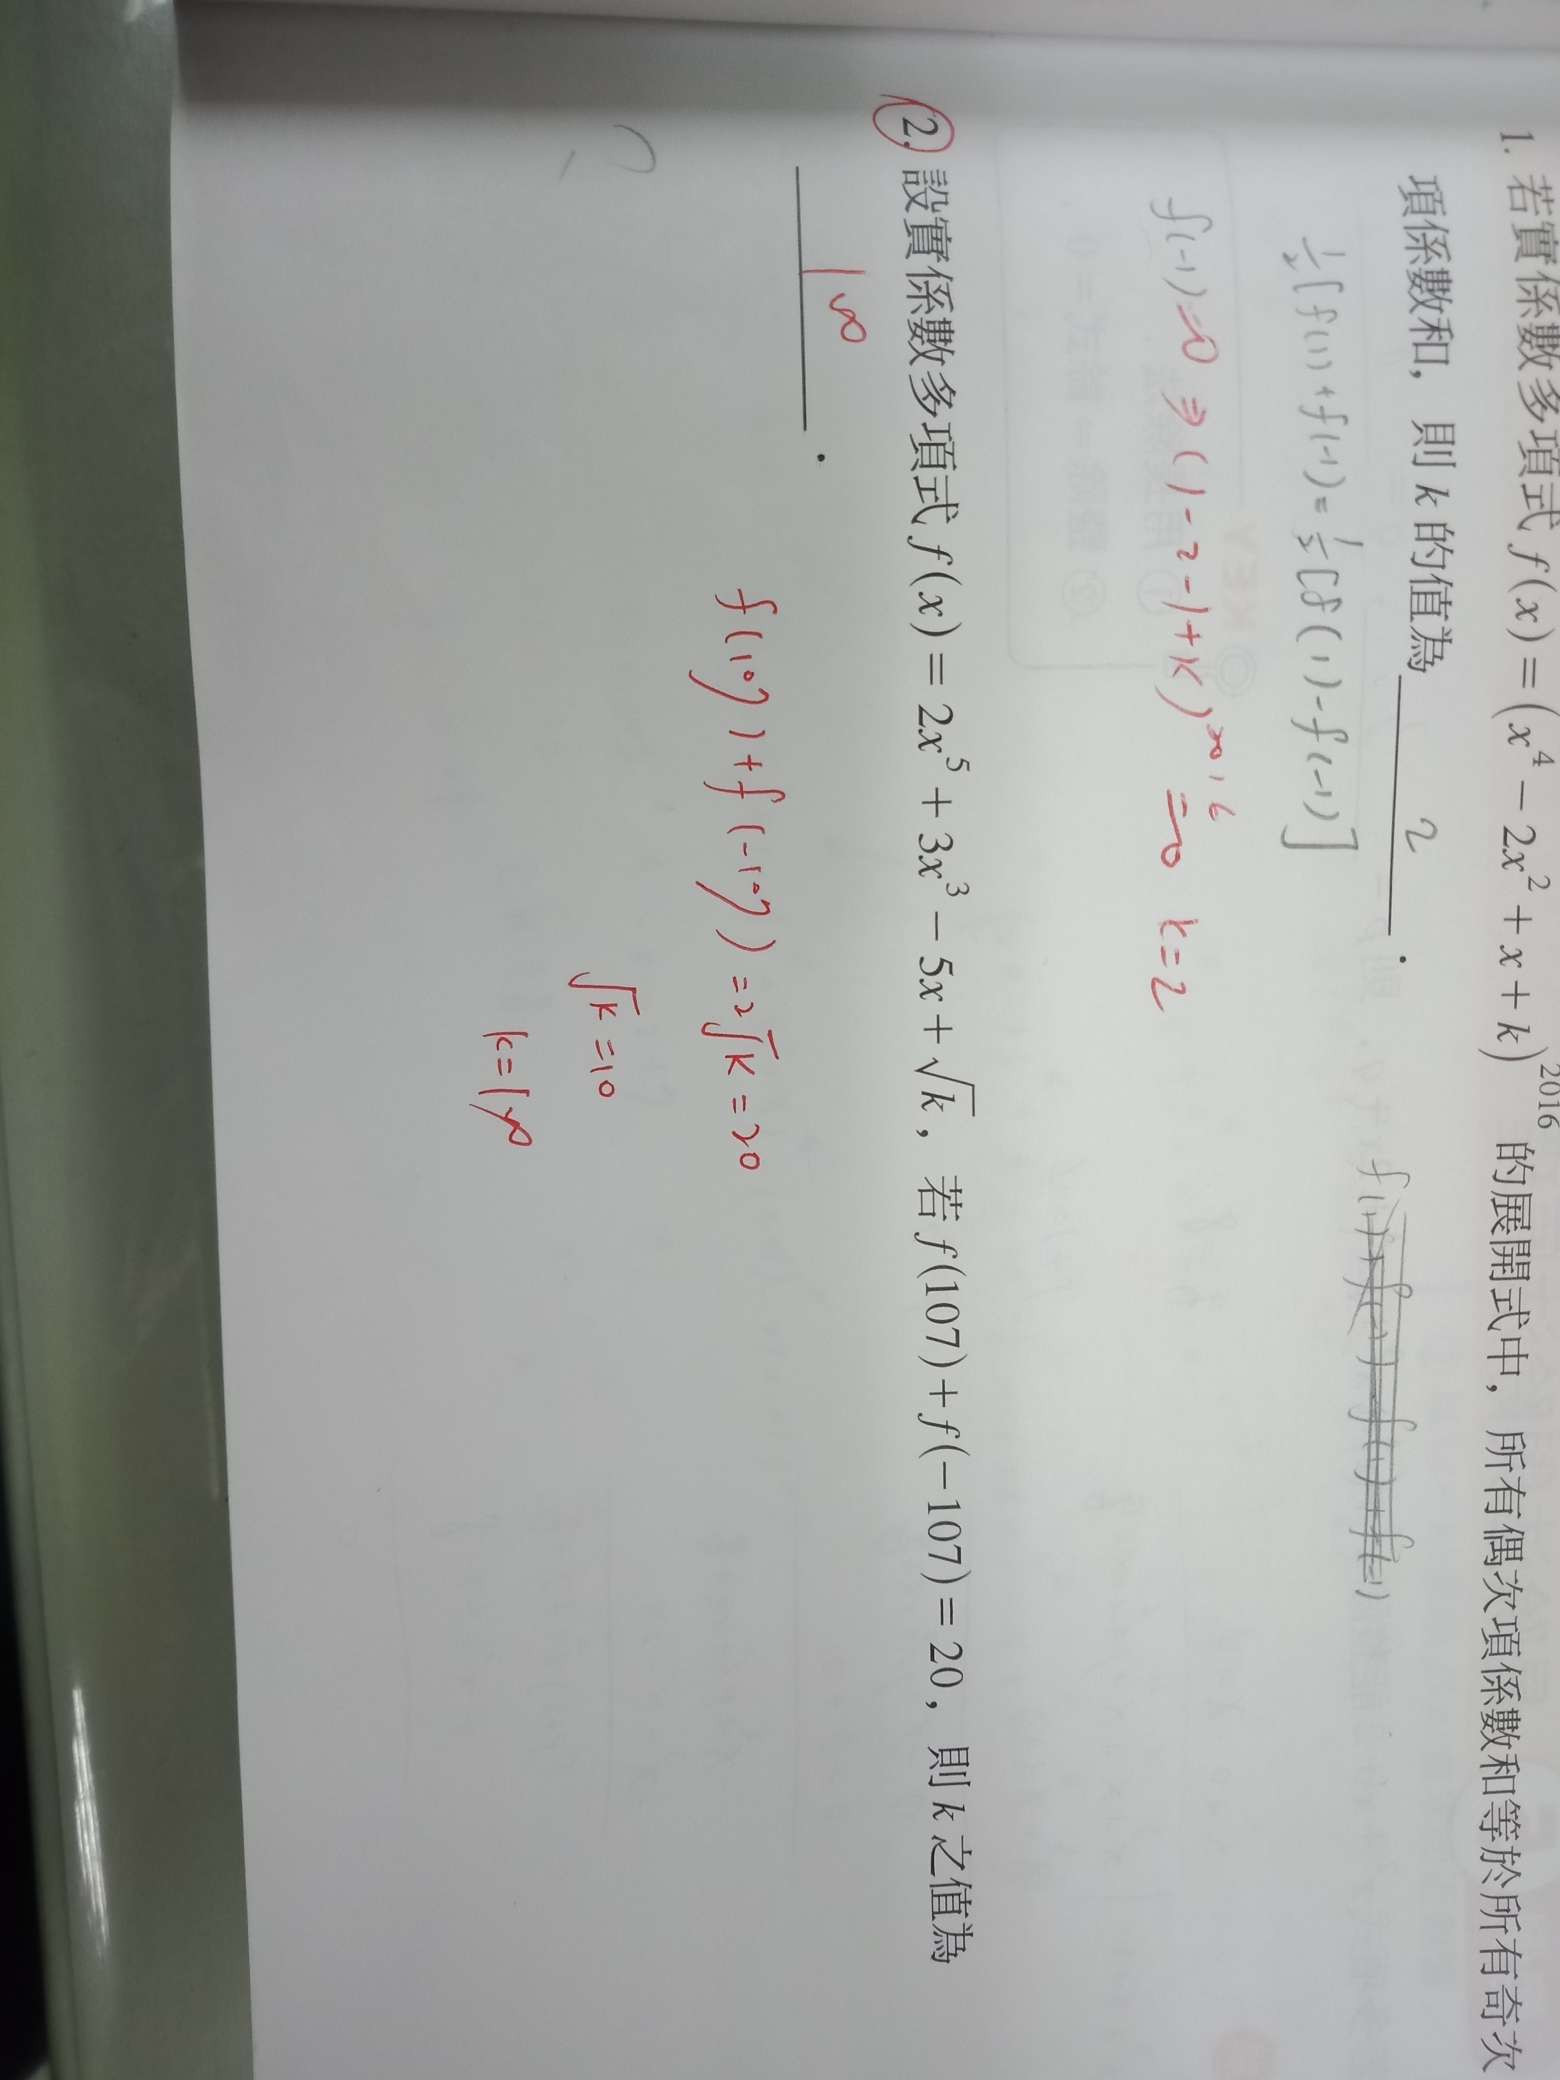 1. 若實係數多項式 f(x)=(x⁴−2x²+x+k)²⁰¹⁶ 的展開式中，所有偶次項係數和等於所有奇次
項係數和，則 k 的值為 2 .
½[f(1)+f(-1)=½[f(1)-f(-1)]
f(-1)=0 ⇒ (1-2-1+k)²⁰¹⁶=0 k=2
2. 設實係數多項式 f(x)=2x⁵+3x³−5x+√k，若 f(107)+f(−107)=20，則 k 之值為
100 .
f(107)+f(-107)=2√k=20
√k=10
k=100